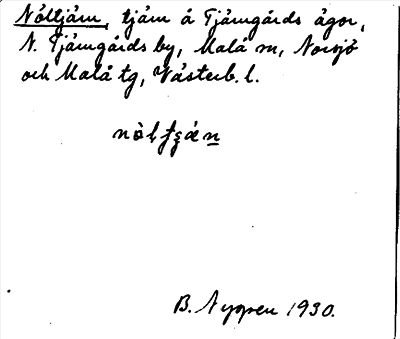 Nöltjärn, tjärn å Tjärngårds ägor,
N. Tjärngårds by, Malå sn, Norsjö
och Malå tg, Västerb. l.
B. Nygren 1930.